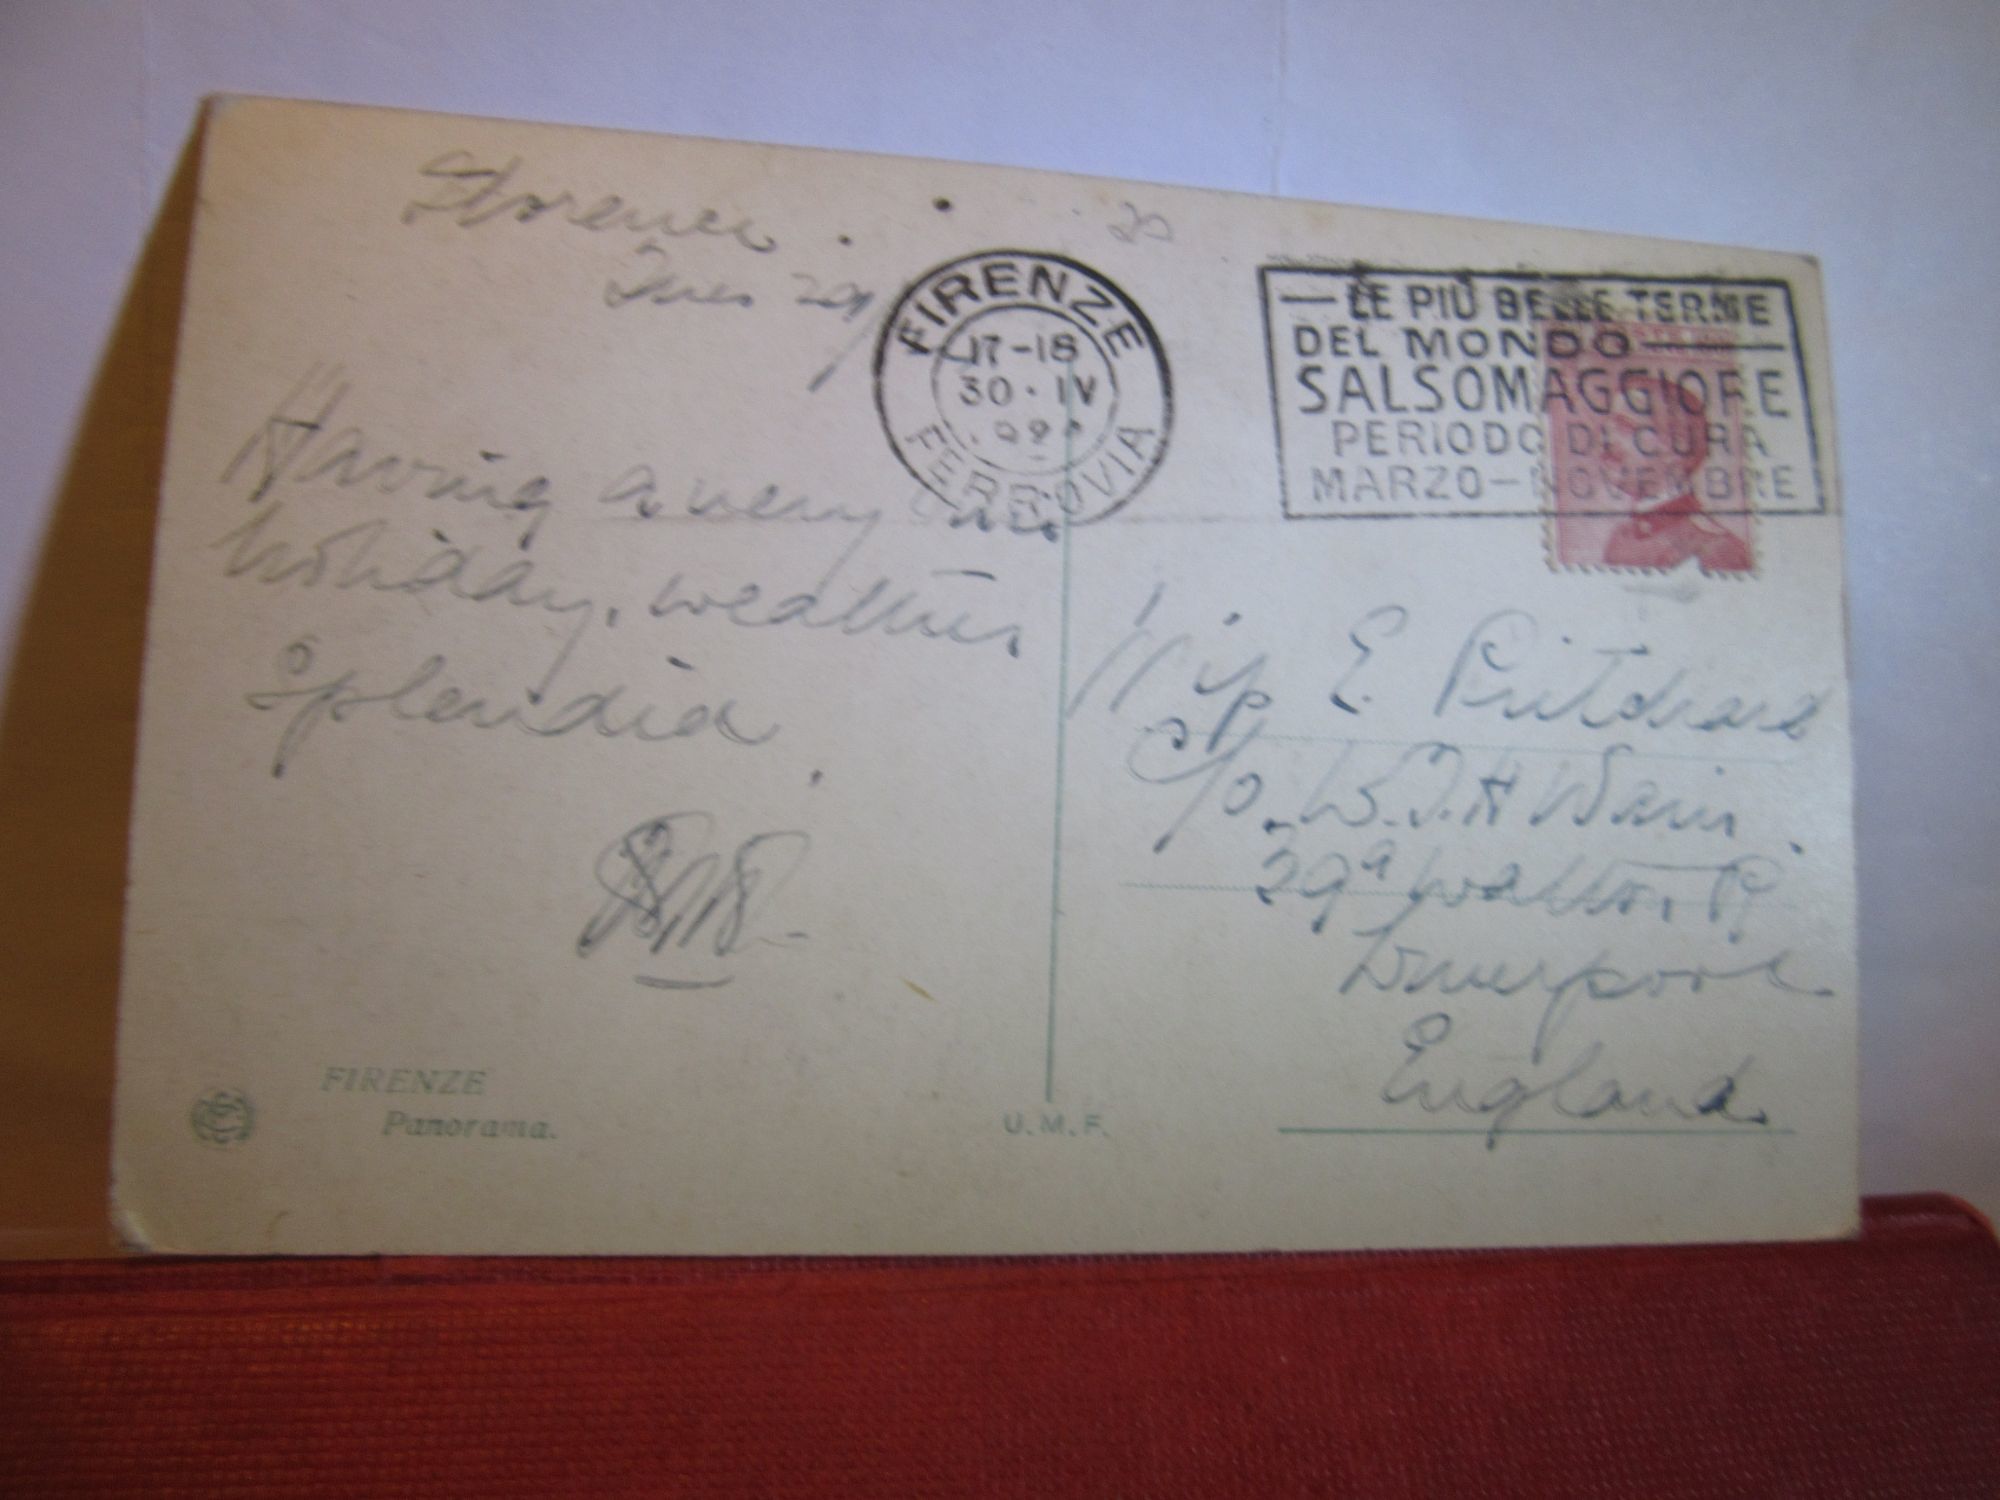 Florence.
Tues 29/
Having a very nice
holiday, weather
Splendid.
20
FIRENZE
17-18
30·IV
FERROVIA
— LE PIÙ BELLE TERME
DEL MONDO —
SALSOMAGGIORE
PERIODO DI CURA
MARZO - NOVEMBRE
E Pritchard
c/o. W.T.H Wain.
29a Walton Rd
Liverpool
England
FIRENZE
Panorama.
U.M.F.